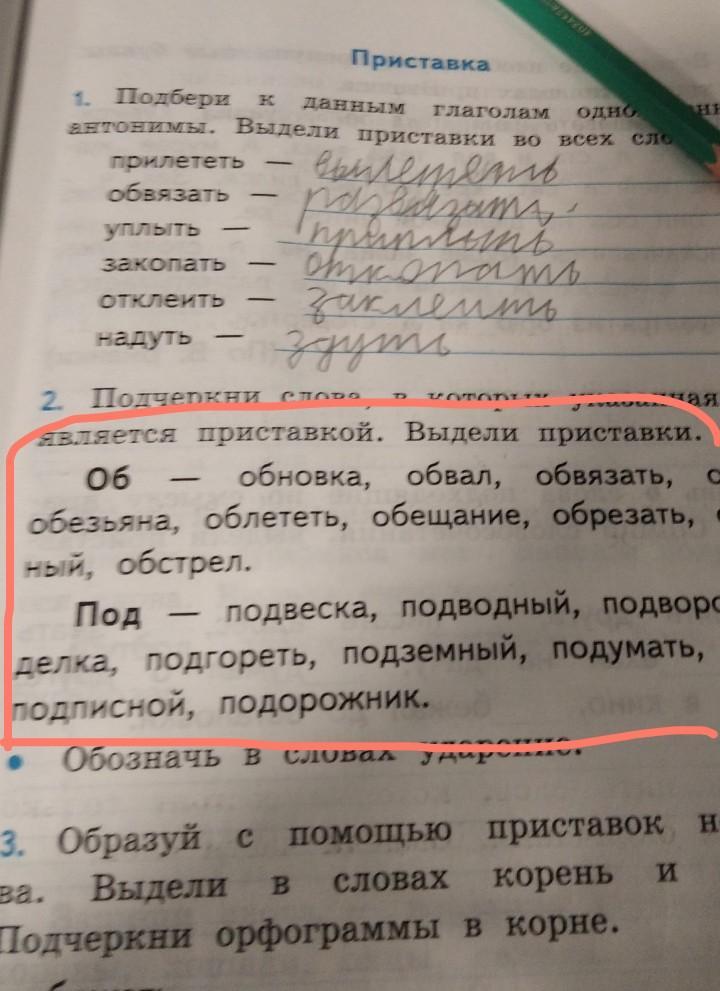 Приставка
1. Подбери к данным глаголам
антонимы. Выдели приставки во всех
прилететь — вылететь
обвязать — развязать,
уплыть — приплыть
закопать — откопать
отклеить — заклеить
надуть — здуть
2. Подчеркни слова, в которых указанная
является приставкой. Выдели приставки.
Об — обновка, обвал, обвязать,
обезьяна, облететь, обещание, обрезать,
ный, обстрел.
Под — подвеска, подводный, подворо
делка, подгореть, подземный, подумать,
подписной, подорожник.
• Обозначь в словах ударение.
3. Образуй с помощью приставок
ва. Выдели в словах корень и
Подчеркни орфограммы в корне.